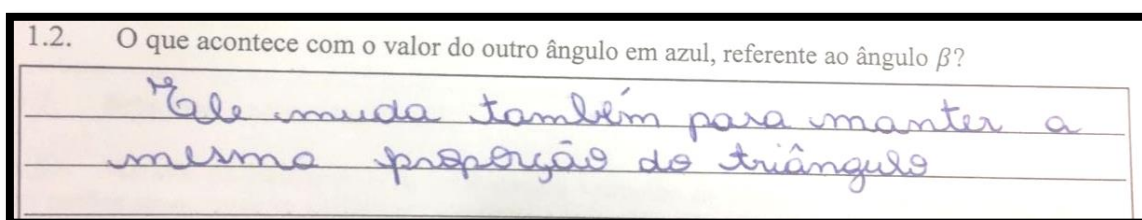 1.2. O que acontece com o valor do outro ângulo em azul, referente ao ângulo β?
Ele muda também para manter a
mesma proporção do triângulo